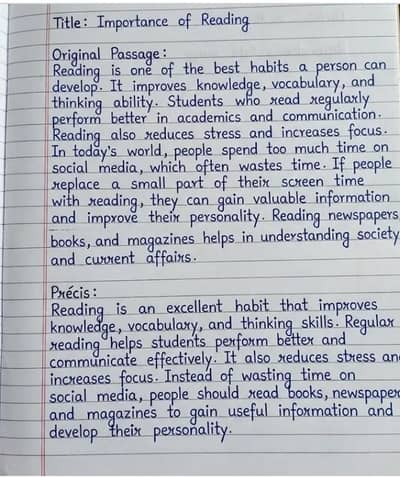 Title: Importance of Reading
Original Passage:
Reading is one of the best habits a person can
develop. It improves knowledge, vocabulary, and
thinking ability. Students who read regularly
perform better in academics and communication.
Reading also reduces stress and increases focus.
In today's world, people spend too much time on
social media, which often wastes time. If people
replace a small part of their screen time
with reading, they can gain valuable information
and improve their personality. Reading newspapers
books, and magazines helps in understanding society
and current affairs.
Précis:
Reading is an excellent habit that improves
knowledge, vocabulary, and thinking skills. Regular
reading helps students perform better and
communicate effectively. It also reduces stress an
increases focus. Instead of wasting time on
social media, people should read books, newspaper
and magazines to gain useful information and
develop their personality.